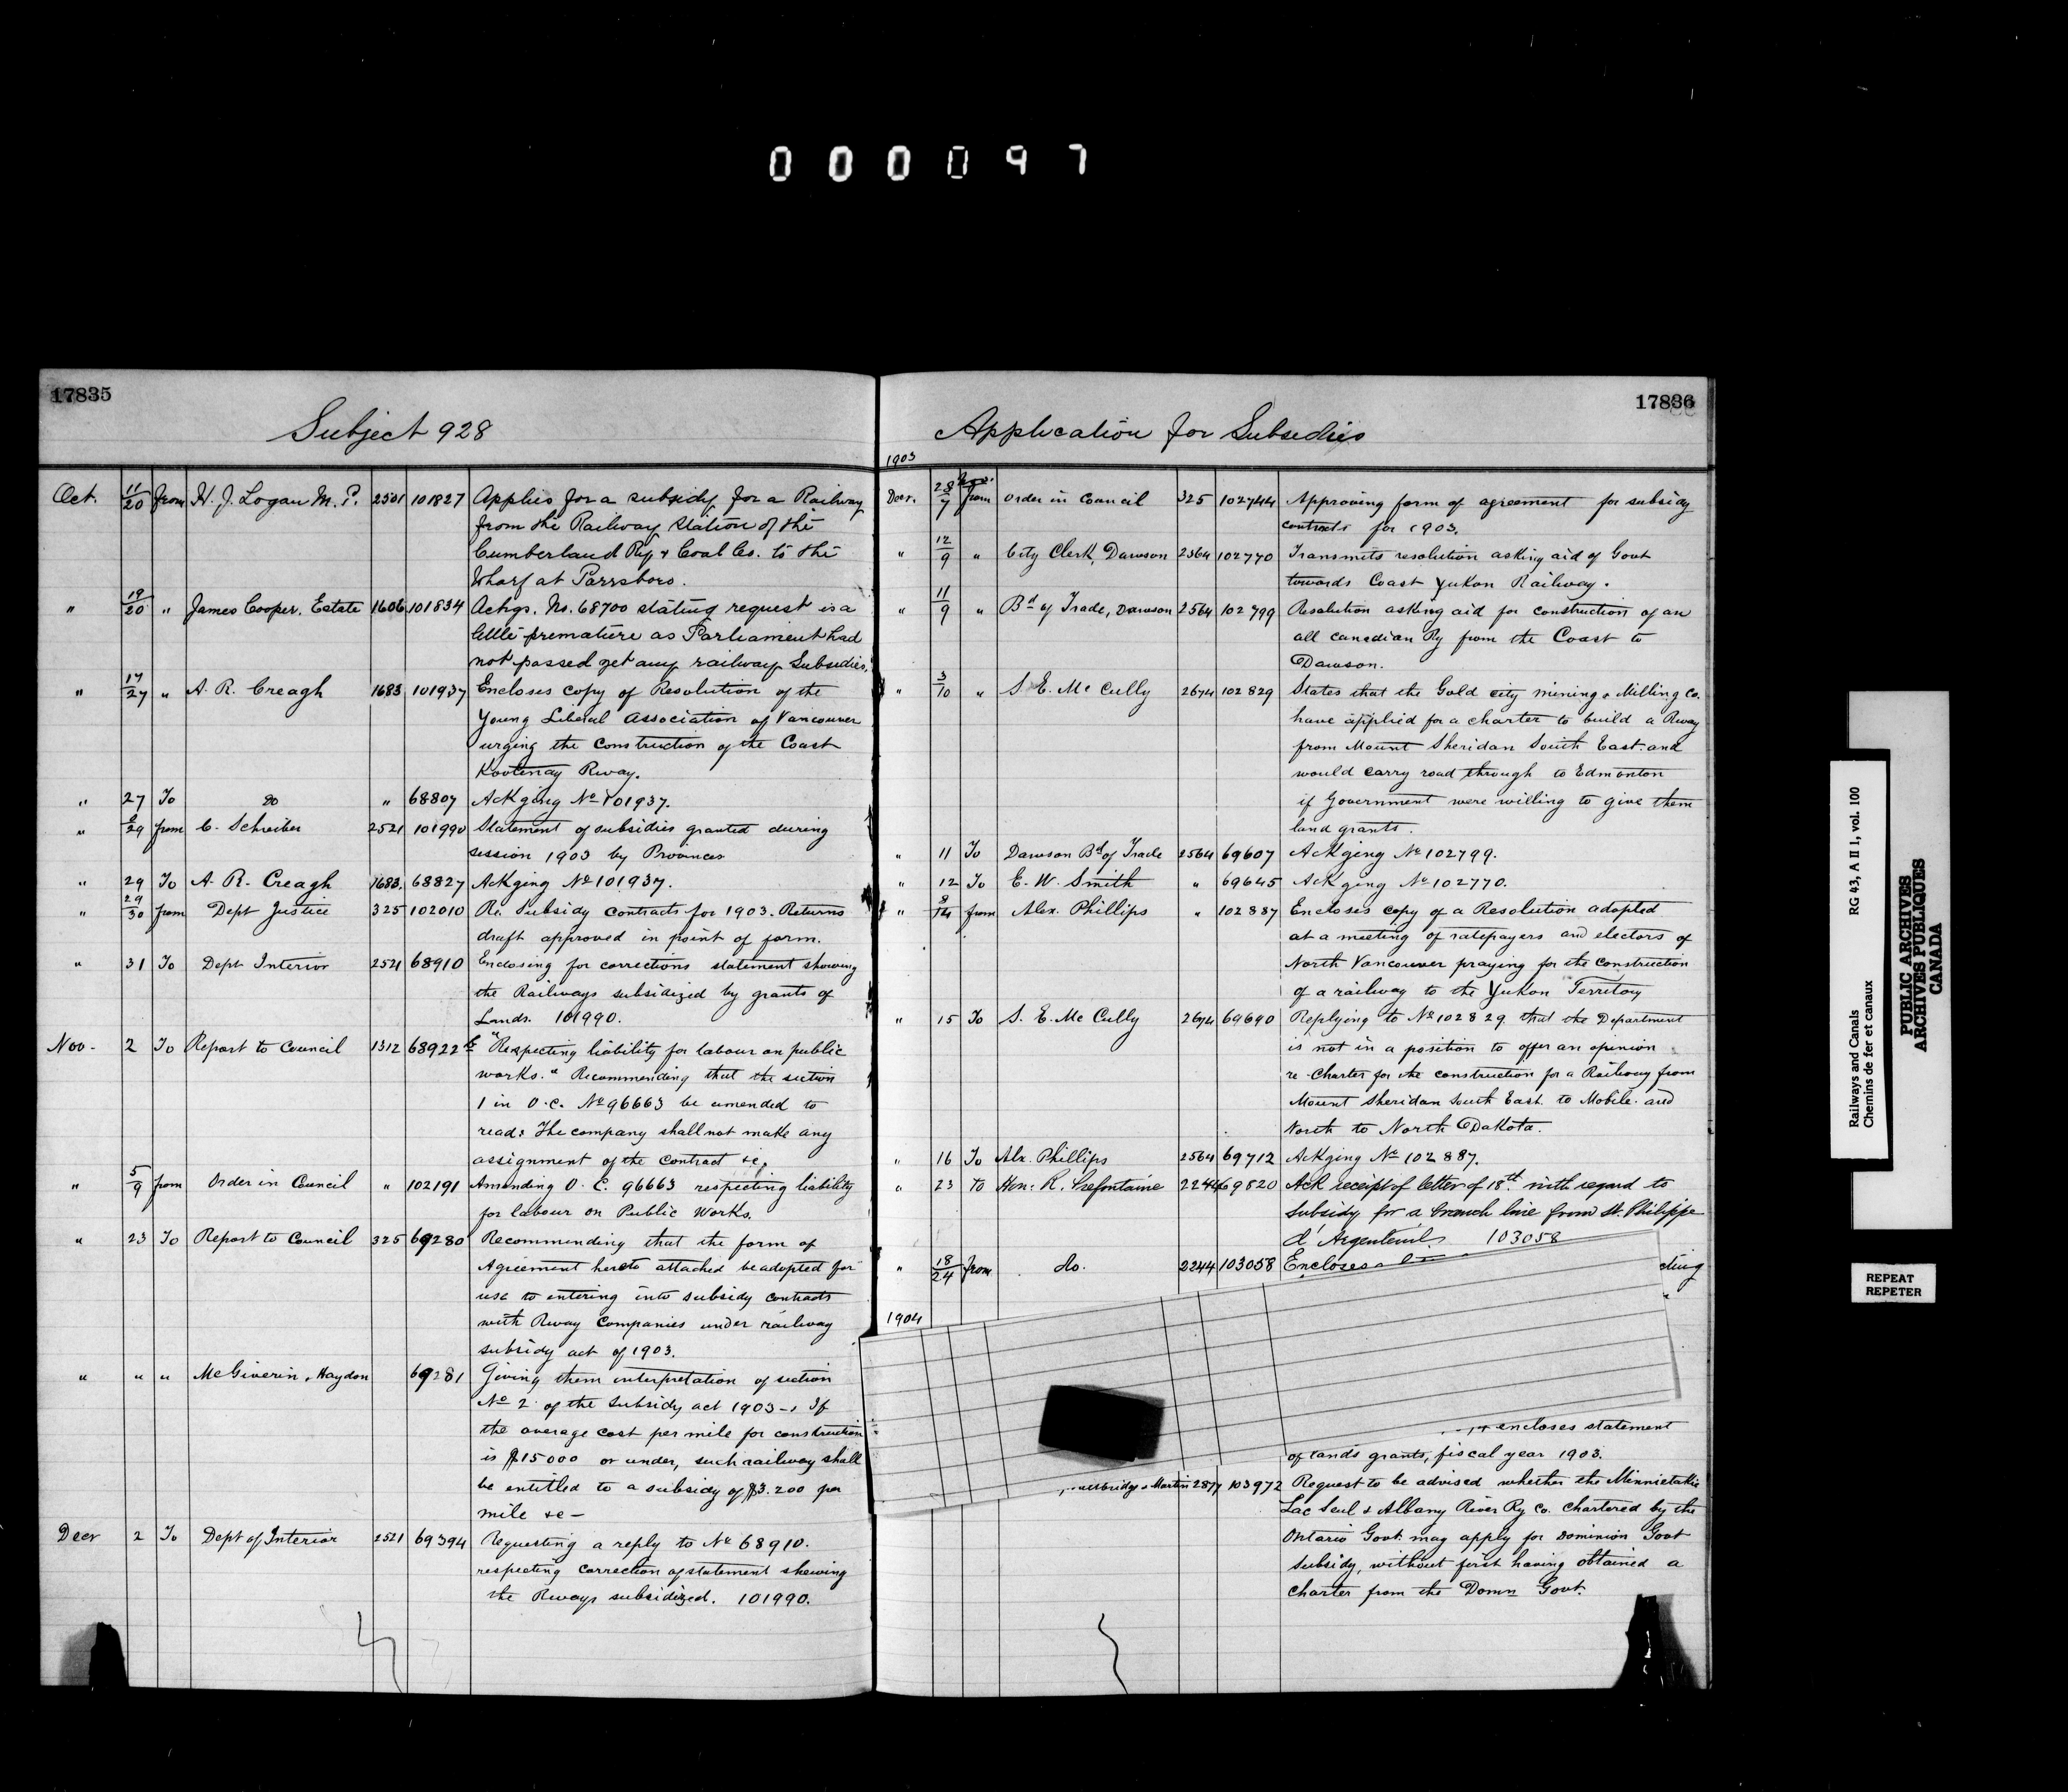 000097
17835
Subject 928
Oct. 11/20 from H. J. Logan M.P. 2501 101827 Applies for a subsidy for a Railway
from the Railway Station of the
Cumberland Ry & Coal Co. to the
Wharf at Parrsboro.
" 19/20 " James Cooper. Estate 1606 101834 Ackgs. No. 68700 stating request is a
little premature as Parliament had
not passed yet any railway Subsidies.
" 17/27 " A. R. Creagh 1683 101937 Encloses copy of Resolution of the
Young Liberal Association of Vancouver
urging the construction of the Coast
Kootenay Rway.
" 27 To do " 68807 Ackging No 101937.
" 29 from C. Schreiber 2521 101990 Statement of subsidies granted during
session 1903 by Provinces
" 29 To A. R. Creagh 1683. 68827 Ackging No 101937.
" 29/30 from Dept Justice 325 102010 Re. Subsidy contracts for 1903. Returns
draft approved in point of form.
" 31 To Dept Interior 2521 68910 Enclosing for corrections statement showing
the Railways subsidized by grants of
Lands. 101990.
Nov - 2 To Report to Council 1312 68922 "Respecting liability for labour on public
works." Recommending that the section
1 in O.C. No 96663 be amended to
read: The company shall not make any
assignment of the contract &c.
" 5/9 from Order in Council " 102191 Amending O.C. 96663 respecting liability
for labour on Public Works.
" 23 To Report to Council 325 69280 Recommending that the form of
Agreement hereto attached be adopted for
use to entering into subsidy contracts
with Rway Companies under railway
subsidy act of 1903.
" " " McGiverin & Haydon 69281 Giving them interpretation of section
No 2 of the Subsidy act 1903 - If
the average cost per mile for construction
is $15000 or under, such railway shall
be entitled to a subsidy of $3.200 per
mile &c -
Decr 2 To Dept of Interior 2521 69394 Requesting a reply to No 68910.
respecting correction of statement shewing
the Rways subsidized. 101990.
17836
Application for Subsidies
1903
Decr. 28/7 from Order in Council 325 102744 Approving form of agreement for subsidy
contracts for 1903.
" 12/9 " City Clerk, Dawson 2564 102770 Transmits resolution asking aid of Govt
towards Coast Yukon Railway.
" 11/9 " Bd of Trade, Dawson 2564 102799 Resolution asking aid for construction of an
all canadian Ry from the Coast to
Dawson.
" 3/10 " S. E. McCully 2674 102829 States that the Gold City Mining & Milling Co.
have applied for a charter to build a Rway
from Mount Sheridan South East and
would carry road through to Edmonton
if Government were willing to give them
land grants.
" 11 To Dawson Bd of Trade 2564 69607 Ackging No 102799.
" 12 To E. W. Smith " 69645 Ackging No 102770.
" 8/14 from Alex. Phillips " 102887 Encloses copy of a Resolution adopted
at a meeting of ratepayers and electors of
North Vancouver praying for the construction
of a railway to the Yukon Territory
" 15 To S. E. McCully 2674 69690 Replying to No 102829 that the Department
is not in a position to offer an opinion
re Charter for the construction for a Railway from
Mount Sheridan South East to Mobile and
North to North Dakota.
" 16 To Alx. Phillips 2564 69712 Ackging No 102887.
" 23 To Hon. R. Prefontaine 2244 69820 Ack receipt of letter of 18th with regard to
subsidy for a branch line from St. Philippe
d'Argenteuil 103058
" 18/24 from do. 2244 103058 Encloses
1904
encloses statement
of lands grants, fiscal year 1903.
& Martin 2877 103972 Request to be advised whether the Minnietakie
Lac Seul & Albany River Ry Co. Chartered by the
Ontario Govt may apply for Dominion Govt
Subsidy, without first having obtained a
Charter from the Domn Govt.
Railways and Canals RG 43, A II 1, vol. 100
Chemins de fer et canaux
PUBLIC ARCHIVES
ARCHIVES PUBLIQUES
CANADA
REPEAT
REPETER